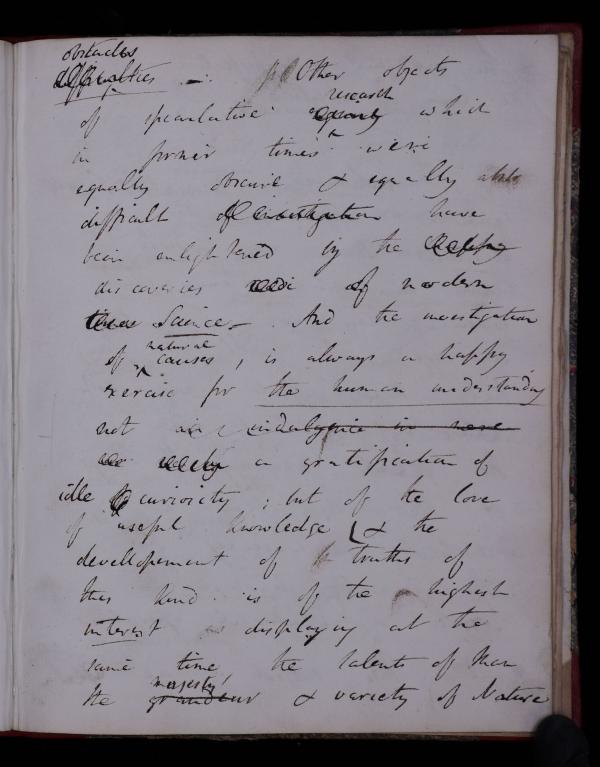 obstacles
difficulties —. Other objects
research
of speculative enquiry which
in former times were
equally obscure & equally
difficult of investigation have
been enlightened by the happy
discoveries made of modern
times Science — . And the investigation
natural
of causes, is always a happy
exercise for the human understanding
not an indulgence in mere
a gratification of
idle curiosity ; but of the love
of useful knowledge & the
developement of truths of
this kind is of the highest
interest displaying at the
same time the talents of Man
majesty
the grandeur & variety of Nature